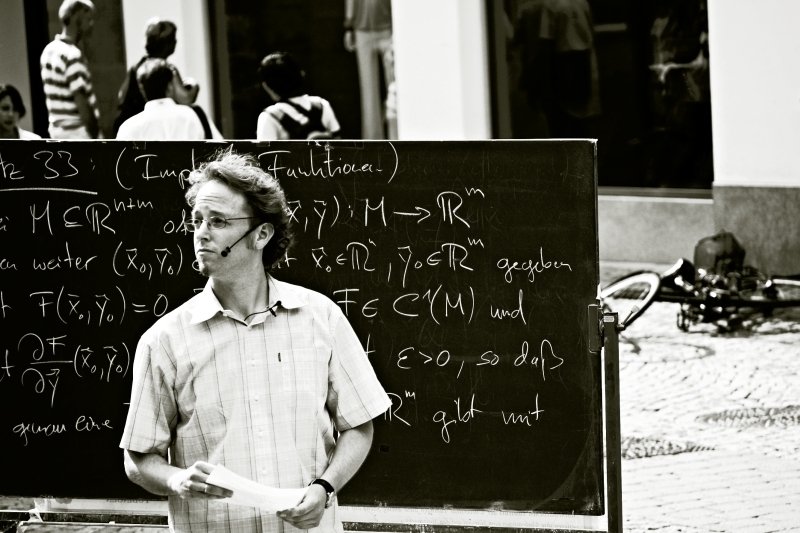 tz 33: (Imp Funktionen)
M ⊆ ℝⁿ⁺ᵐ of x⃗,y⃗): M → ℝᵐ
en weiter (x⃗₀,y⃗₀) t x⃗₀∈ℝⁿ, y⃗₀∈ℝᵐ gegeben
t F(x⃗₀,y⃗₀)=0 F∈C¹(M) und
t ∂F/∂y⃗ (x⃗₀,y⃗₀) t ε>0, so daß
genau eine ℝᵐ gibt mit